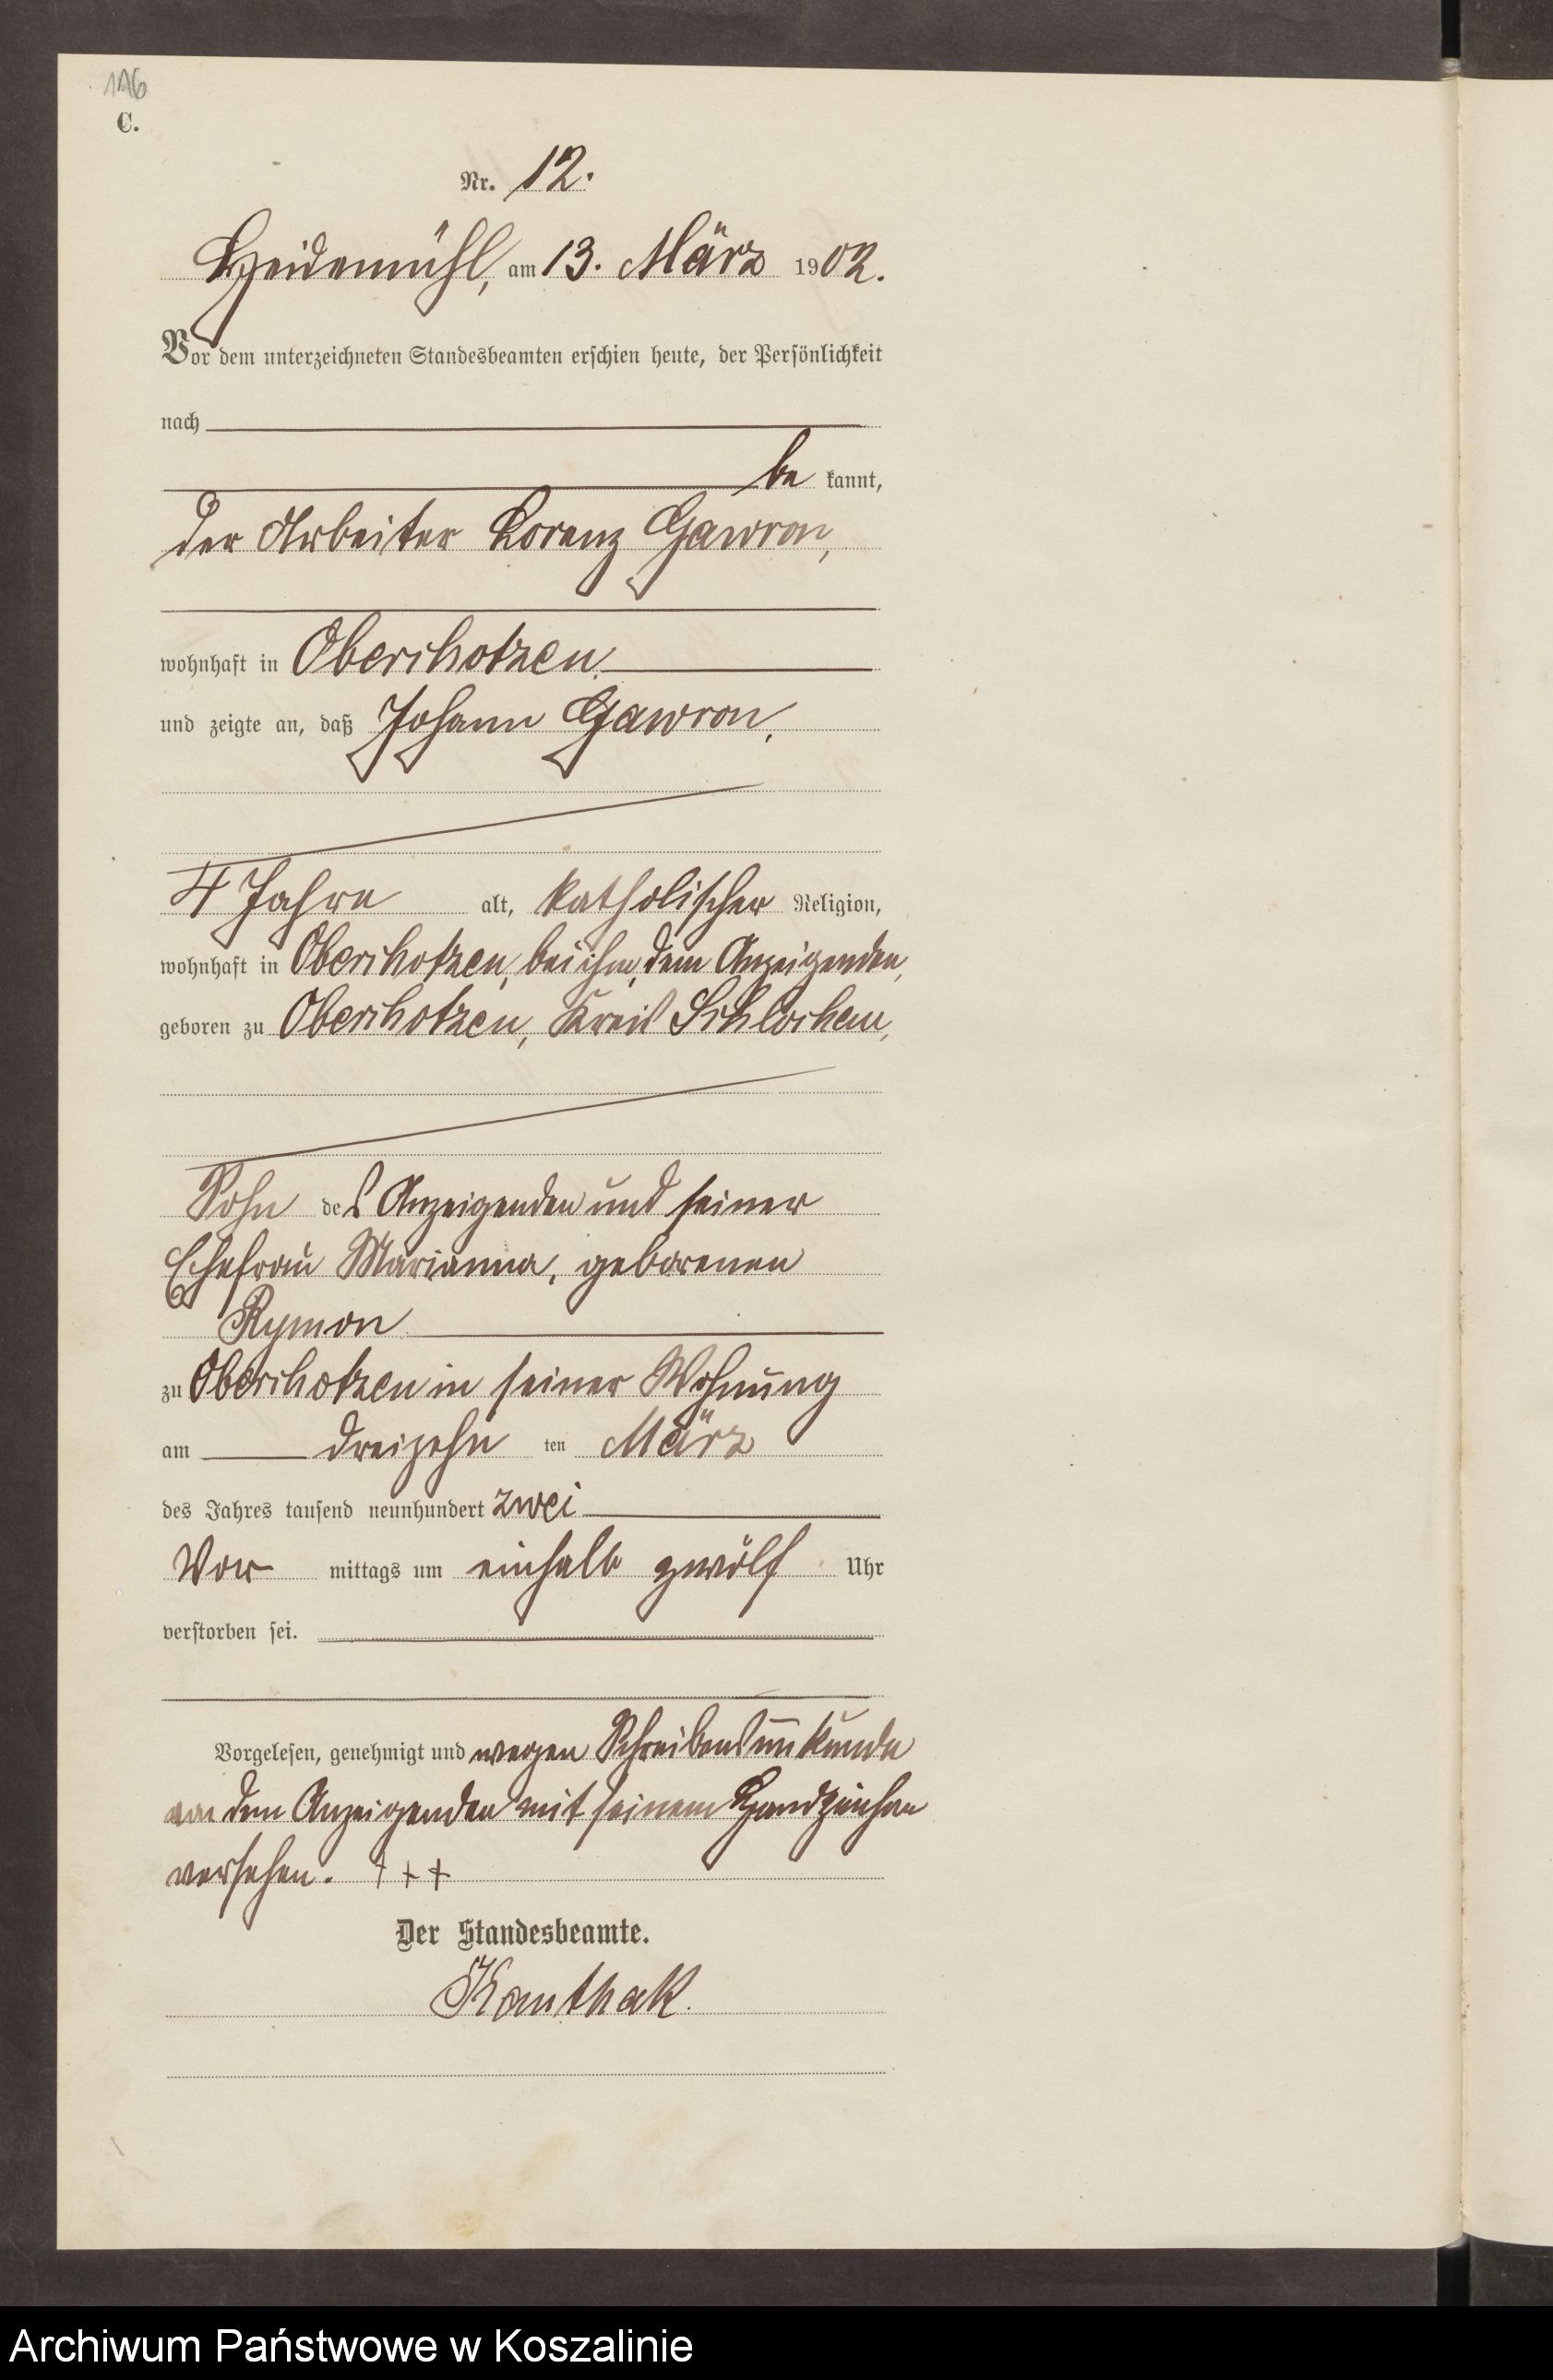 C.
Nr. 12.
Heidemühl, am 13. März 1902.
Vor dem unterzeichneten Standesbeamten erschien heute, der Persönlichkeit
nach
be kannt,
der Arbeiter Lorenz Gawron,
wohnhaft in Oberchotzen,
und zeigte an, daß Johann Gawron,
4 Jahre alt, katholischer Religion,
wohnhaft in Oberchotzen, bei ihm, dem Anzeigenden,
geboren zu Oberchotzen, Kreis Schlochau,
Sohn des Anzeigenden und seiner
Ehefrau Marianna, geborenen
Rymon
zu Oberchotzen in seiner Wohnung
am dreizehn ten März
des Jahres tausend neunhundert zwei
Vor mittags um einhalb zwölf Uhr
verstorben sei.
Vorgelesen, genehmigt und wegen Schreibensunkunde
von dem Anzeigenden mit seinem Handzeichen
versehen. +++
Der Standesbeamte.
Kanthak.
Archiwum Państwowe w Koszalinie